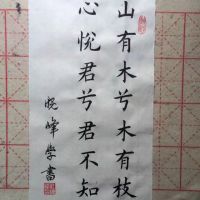 山有木兮木有枝
心悦君兮君不知
晓峰学書